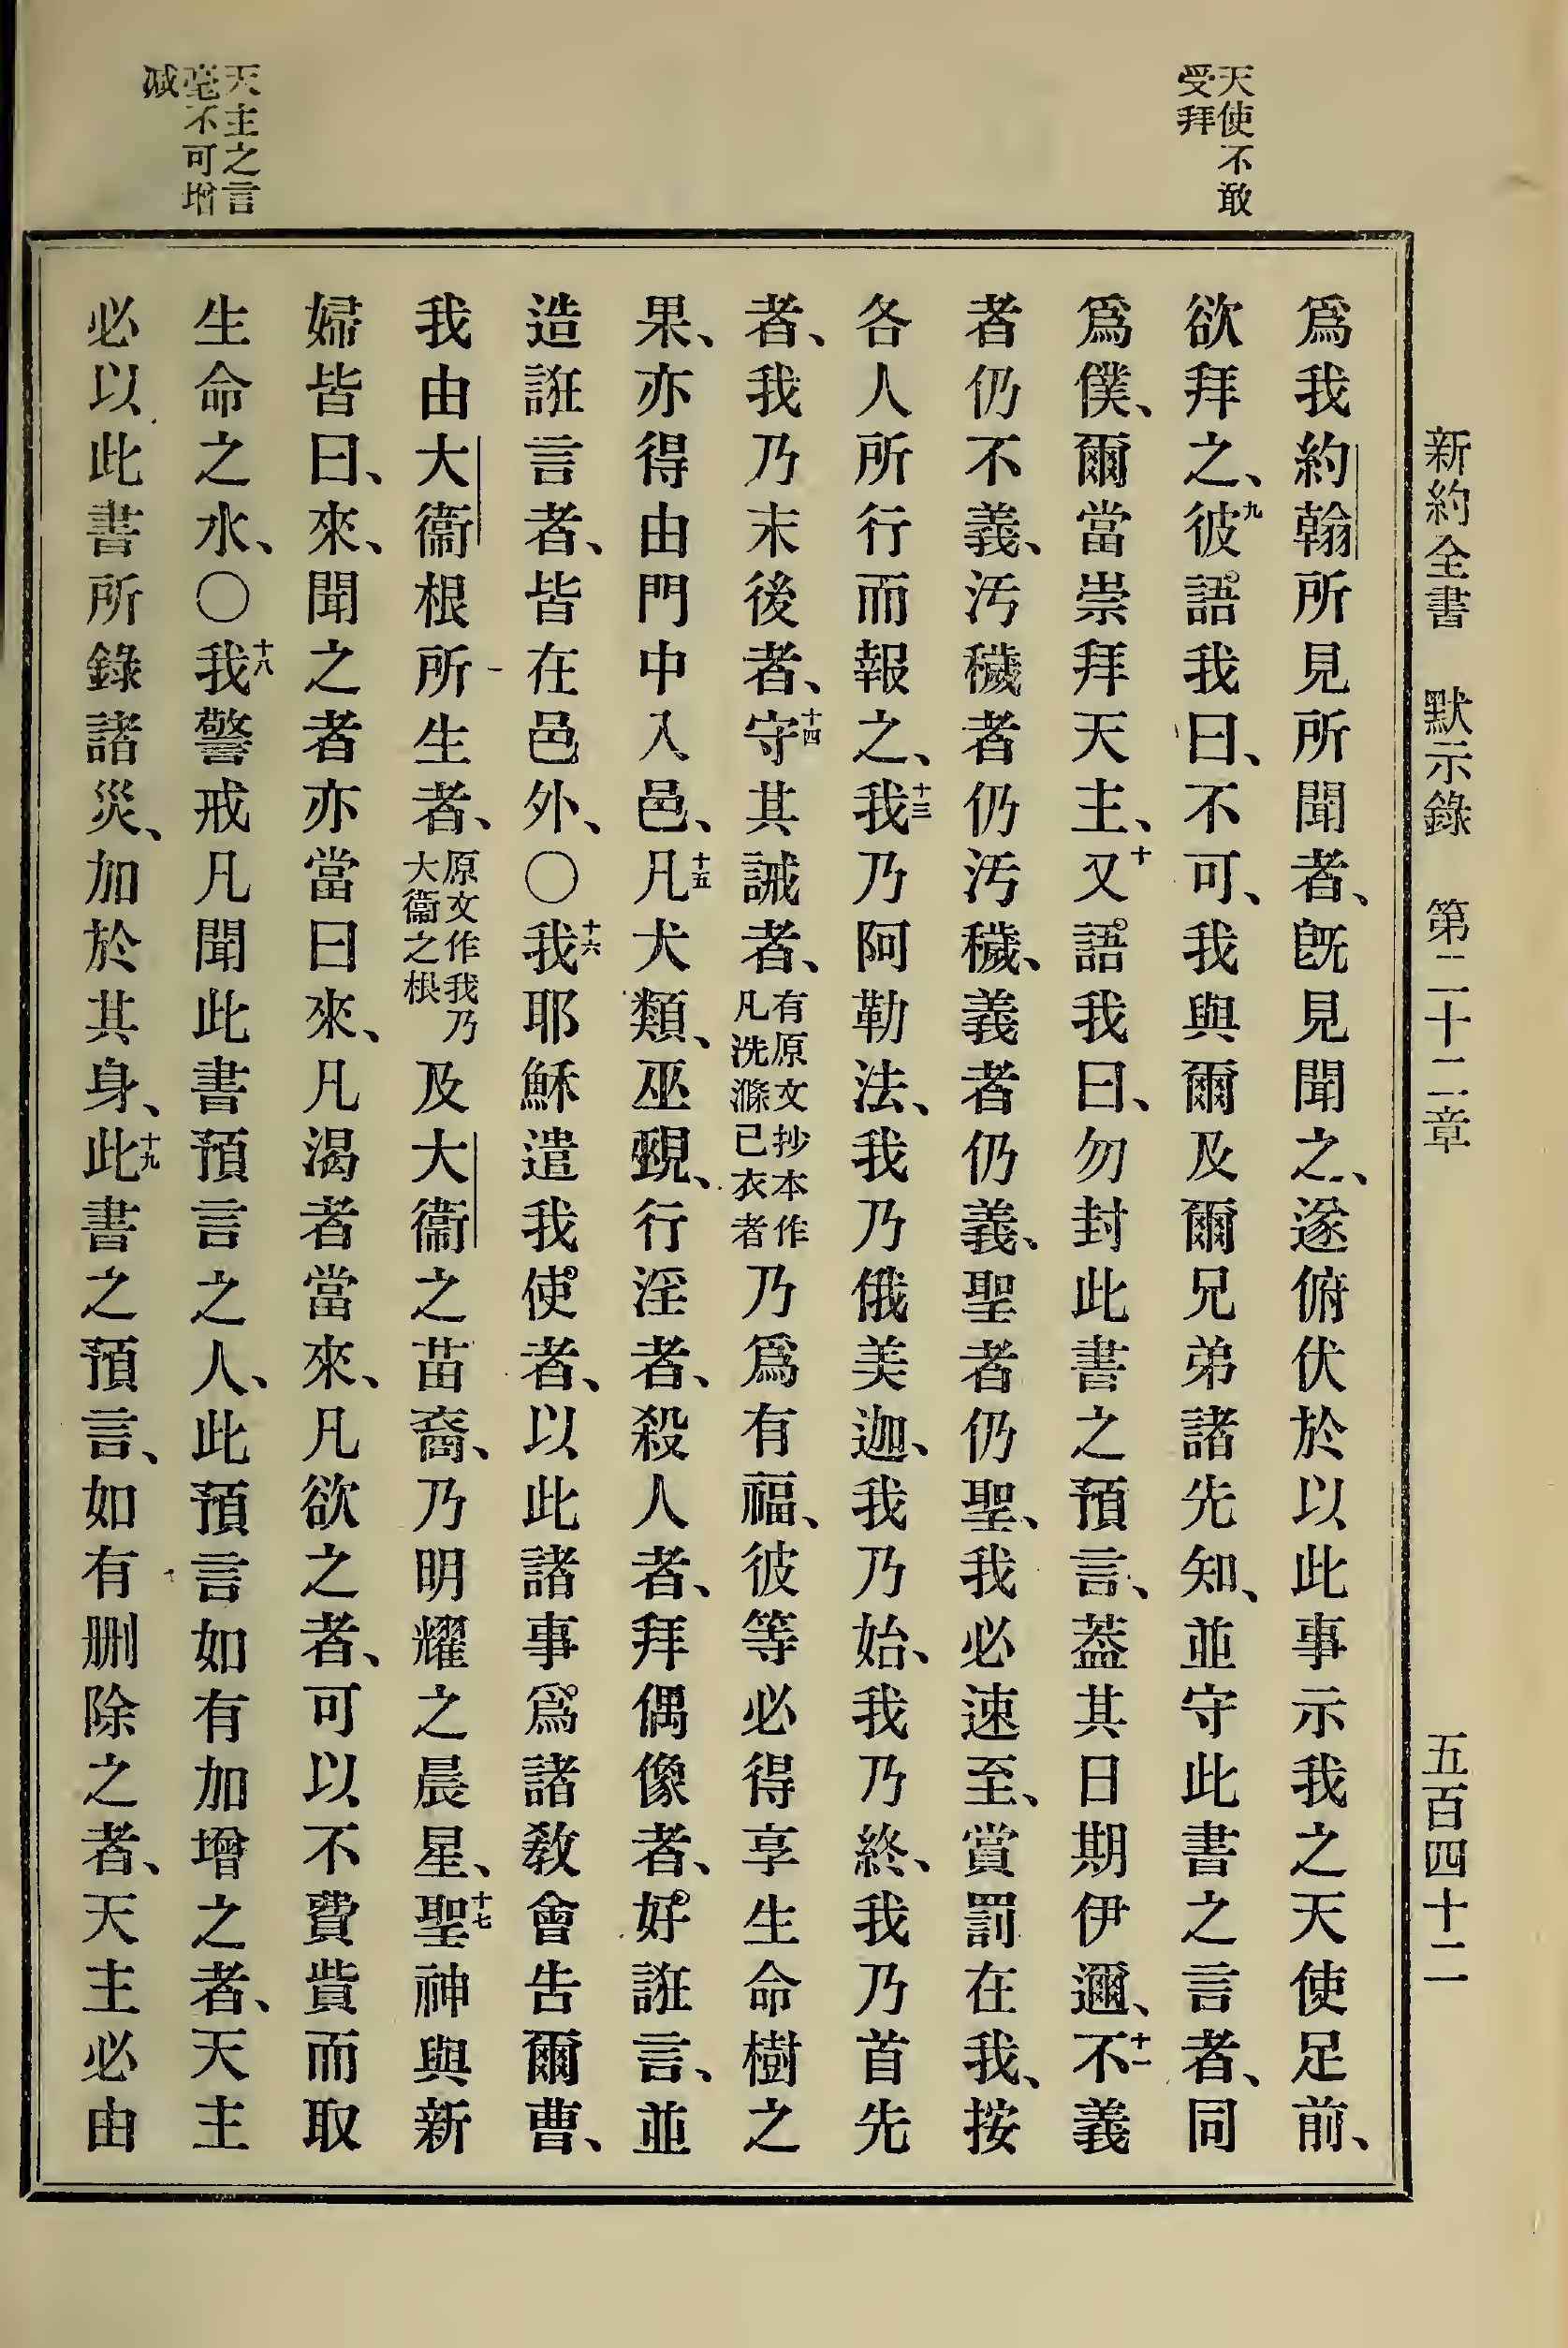 新約全書 默示錄 第二十二章 五百四十二
天使不敢
受拜
天主之言
毫不可增
減
爲我約翰所見所聞者、旣見聞之、遂俯伏於以此事示我之天使足前、
欲拜之、九彼語我曰、不可、我與爾及爾兄弟諸先知、並守此書之言者、同
爲僕、爾當崇拜天主、十又語我曰、勿封此書之預言、蓋其日期伊邇、十一不義
者仍不義、汚穢者仍汚穢、義者仍義、聖者仍聖、我必速至、賞罰在我、按
各人所行而報之、十三我乃阿勒法、我乃俄美迦、我乃始、我乃終、我乃首先
者、我乃末後者、十四守其誡者、有原文抄本作凡洗滌已衣者乃爲有福、彼等必得享生命樹之
果、亦得由門中入邑、十五凡犬類、巫覡、行淫者、殺人者、拜偶像者、好誑言、並
造誑言者、皆在邑外、〇十六我耶穌遣我使者、以此諸事爲諸敎會告爾曹、
我由大衞根所生者、原文作我乃大衞之根及大衞之苗裔、乃明耀之晨星、十七聖神與新
婦皆曰、來、聞之者亦當曰來、凡渴者當來、凡欲之者、可以不費貲而取
生命之水、〇十八我警戒凡聞此書預言之人、此預言如有加增之者、天主
必以此書所錄諸災、加於其身、十九此書之預言、如有删除之者、天主必由